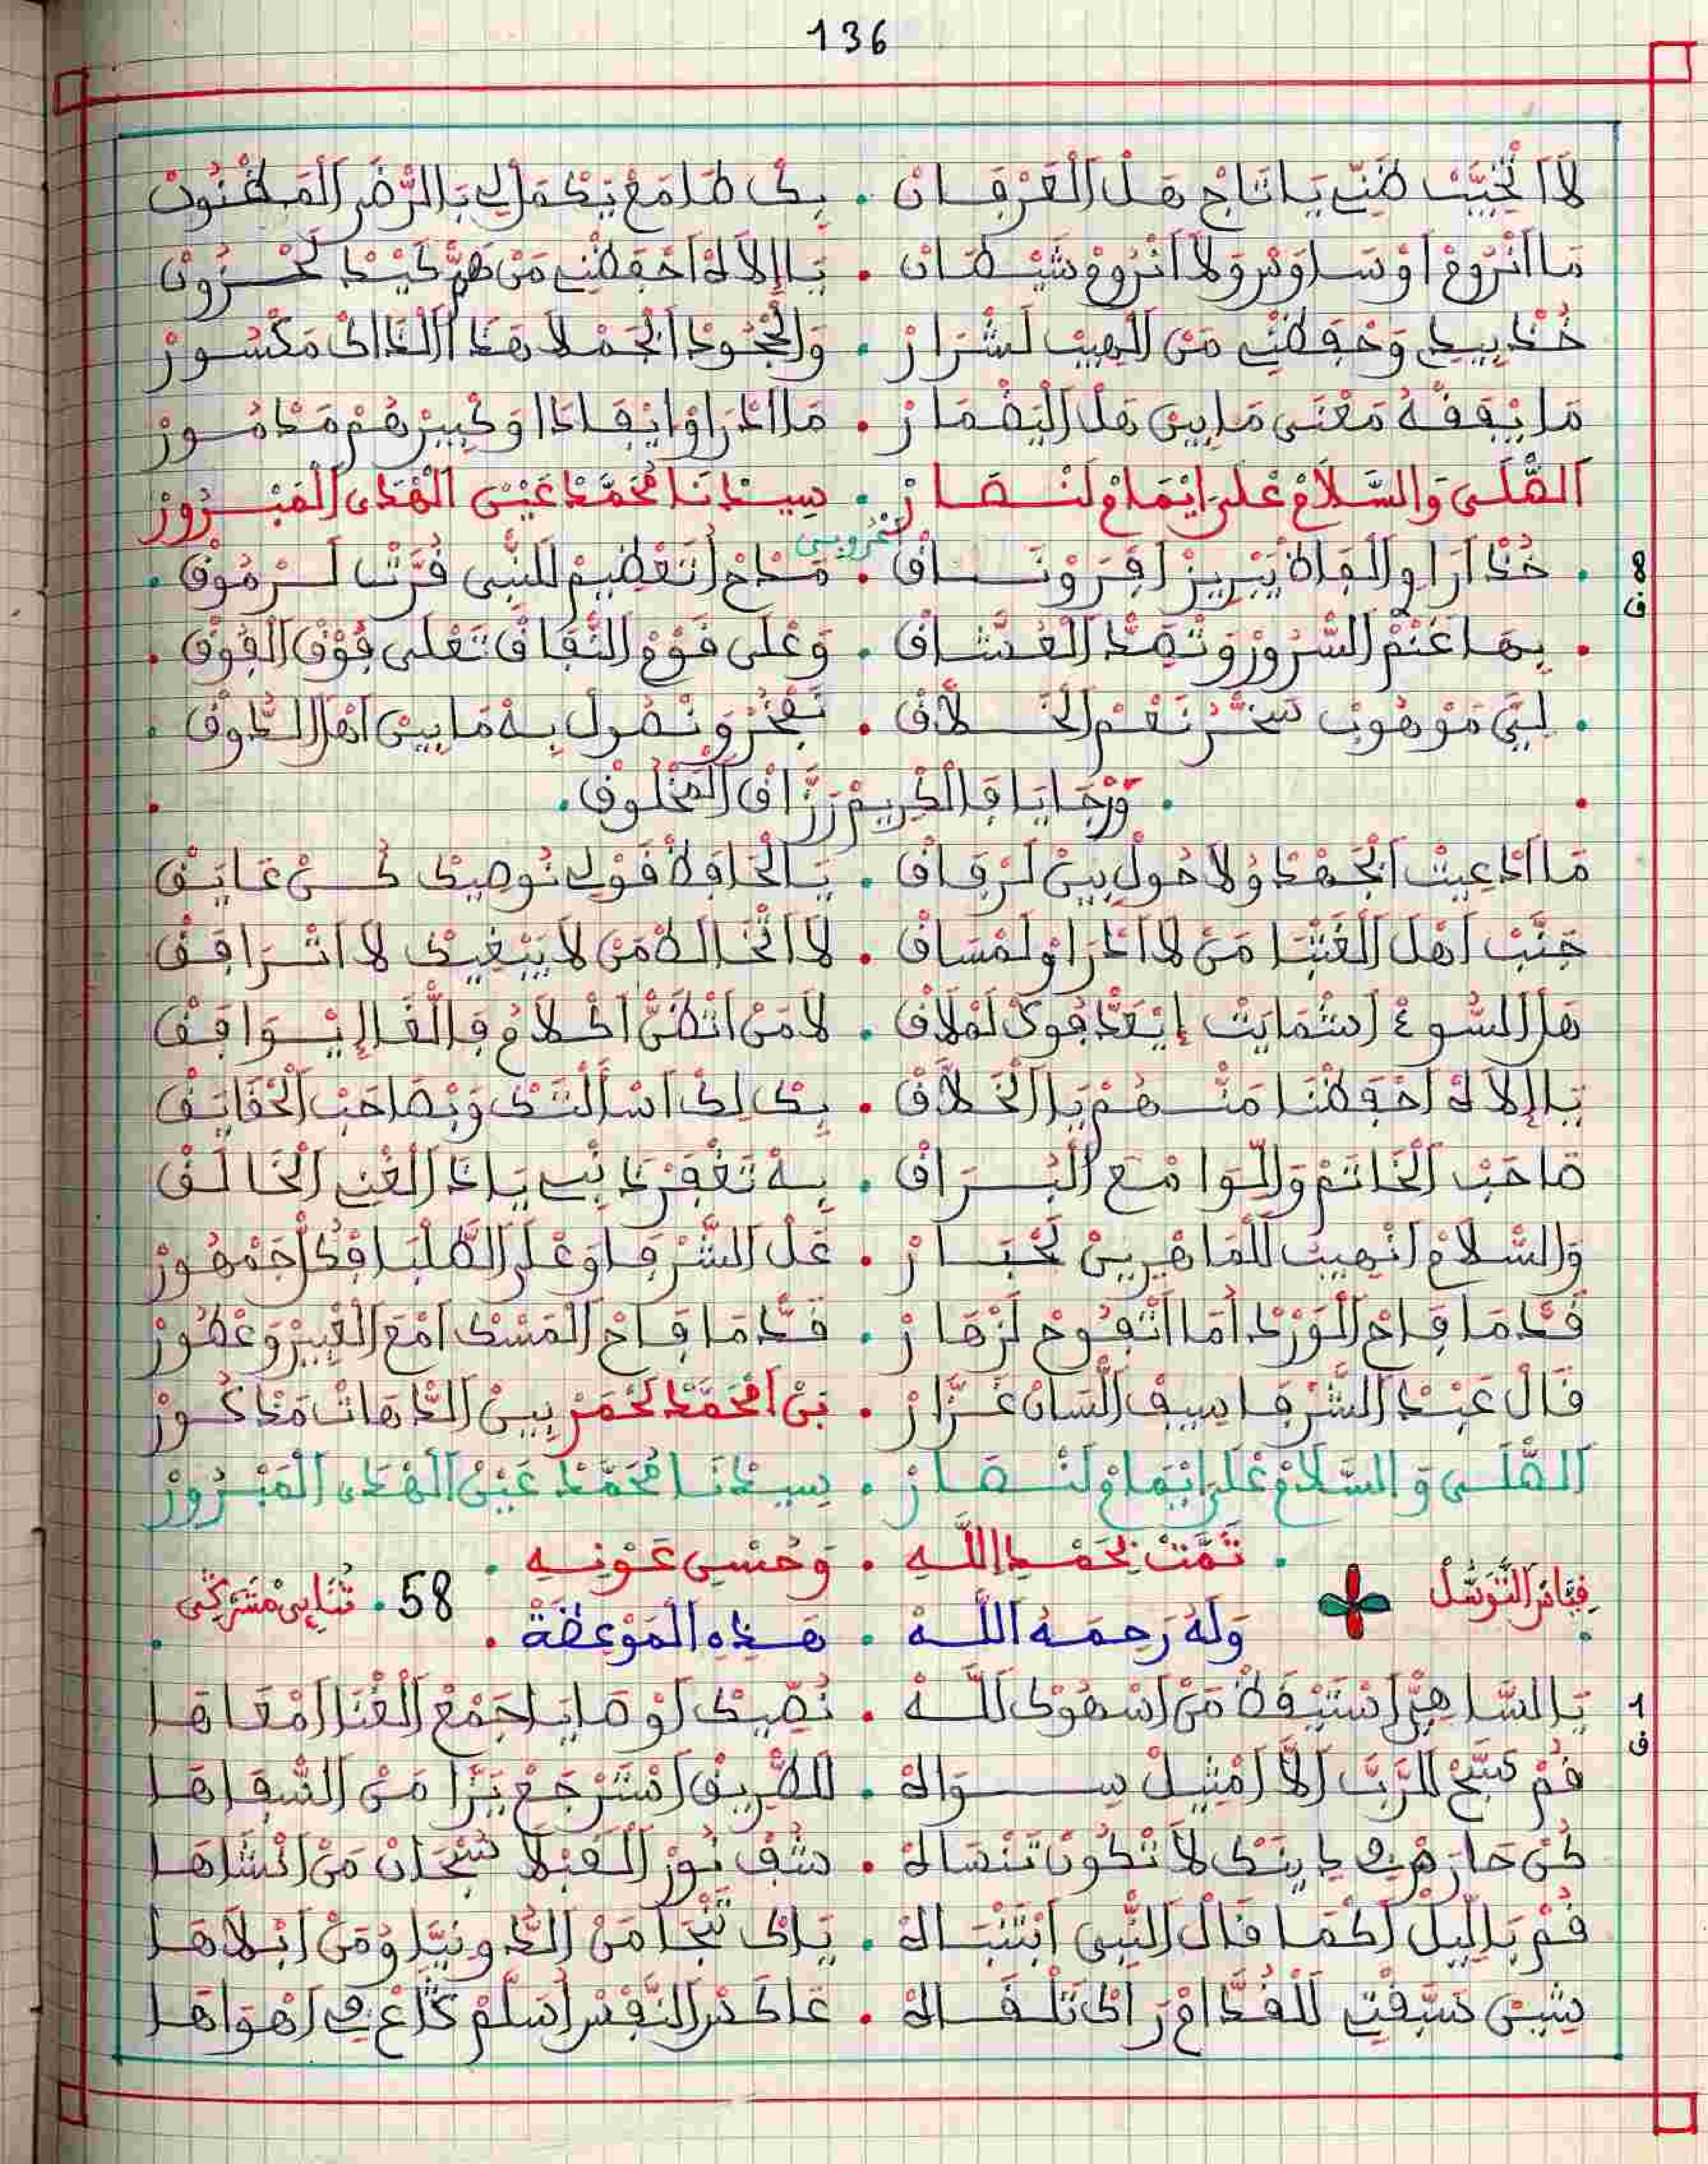 136
لَا اتْخَيَّبْ ظَنِّي يَا تَاجْ هَلْ الْعَرْفَانْ . بِكْ طَامَعْ يَكْمَلْ لِي بَالرّْضَى الْمَظْنُونْ
مَا انْرُوعْ اَوْسَاوَسْ وَلَا انْرُوعْ شَيْطَانْ . يَا إِلَاهْ احْفَظْنِي مَنْ هَمّْ كَيْدْ لَحْزُونْ
خُذْ بِيدِي وَحْفَظْنِي مَنْ الْهِيبْ لَشْرَارْ . وَالْجْحُودْ الْجَمْلَا هَذَا الْذَاكْ مَكْسُورْ
مَا يْفَقْهُ مَعْنَى مَا بِينْ هَلْ الْيَضْمَارْ . مَا ادْرَاوْا يْفَادَا وَكْبِيرْهُمْ مَدْمُورْ
الصّْلَى وَالسَّلَامْ عْلَى ايْمَامْ لَنْصَارْ . سِيدْنَا مُحَمَّدْ عَيْنْ الْهْدَى الْمَبْرُورْ
عْرُوبِي
8 ف
خُذْ آرَاوِي الْفَاهْ يَبْرِيزْ افْرَوْنَاقْ . مَدَاحْ اتَعْظِيمْ لَلنّْبِي قُرَّتْ لَرْمُوقْ .
. بِهَا غَنْمْ السّْرُورْ وَتْصَدّْ الْعُشَّاقْ . وَعْلَى قَوْمْ النّْفَاقْ تَعْلَى فُوقْ الْفُوقْ .
. لِيَّ مَوْهُوبْ سَخَّرْ نَعْمْ الْخَلَّاقْ . نَفْخَرْ وَنْصُولْ بِهْ مَا بِينْ اهْلْ الدُّوقْ .
. وَرْجَايَا فَالْكْرِيمْ رَزَّاقْ الْمَخْلُوقْ .
مَا ادْعِيتْ الْجَهْدْ وُلَا حُولْ بِينْ لَرْفَاقْ . يَالْحَافَظْ قَوْلِي نُوصِيكْ كُنْ عَايَقْ
جَنَّبْ اهْلْ الْغَتْبَا مَنْ لَا ادْرَاوْ لَمْسَاقْ . لَا اتْخَالَطْ مَنْ لَا يَبْغِيكْ لَا اتْرَافَقْ
هَلْ السُّوءْ اشْمَايَتْ إِيْعَدّْفُوكْ لَمْلَاقْ . لَا مَنْ انْظَنّْ اكْلَامُ فَالْفَالْ إِيْوَافَقْ
يَا إِلَاهْ احْفَظْنَا مَنْهُمْ يَا الْخَلَّاقْ . بِكْ لِكْ اسْأَلْتَكْ وَبْصَاحَبْ الْحْقَايَقْ
صَاحَبْ الْخَاتَمْ وَالّْوَا مْعَ الْبُرَاقْ . بِهْ تَغْفَرْ دَنْبِي يَا ذَا الْغْنِي الْخَالَقْ
وَالسّْلَامْ انْهِيبْ لَلْمَاهْرِينْ لَحْبَارْ . عَلْ الشَّرْفَا وَعْلَى الطُّلْبَا فْكُلّْ جَمْهُورْ
قَدّْ مَا فَاحْ الْوَرْدْ أُمَا اتْفُوحْ لَزْهَارْ . قَدّْ مَا فَاحْ الْمَسْكْ امْعَ الْعْبِيرْ وَعْطُورْ
قَالْ عَبْدْ الشَّرْفَا سِيفْ الّْسَانْ غَزَّارْ . بَنْ امْحَمَّدْ لَحْمَرْ بِينْ الدّْهَاتْ مَذْكُورْ
الصّْلَى وَالسَّلَامْ عْلَى ايْمَامْ لَنْصَارْ . سِيدْنَا مُحَمَّدْ عَيْنْ الْهْدَى الْمَبْرُورْ
. تَمَّتْ بِحَمْدِ اللَّهِ . وَحُسْنِ عَوْنِهِ .
قِيَاسْ التَّوَسُّلْ
58 . ثُنَايِي مْشَرْكِي
وَلَهُ رَحِمَهُ اللَّهْ . هَذِهِ الْمَوْعِظَةْ .
1 ف
يَا السَّاهِي اسْتَيْقَظْ مَنْ اسْهُوكْ لَلَّهْ . نُصِيكْ اوْصَايَا جَمْعْ الْغْنَا امْعَاهَا
قُمْ سَبَّحْ لَلرَّبّْ الَّا امْثِيلْ سِوَاهْ . لَلطّْرِيقْ اسْتَرْجَعْ يَزَّا مَنْ السّْفَاهَا
كُنْ حَارَصْ فِي دِينَكْ لَا تْكُونْ تَنْسَاهْ . شُفْ نُورْ الْقَبْلَا سُبْحَانْ مَنْ انْشَاهَا
قُمْ بَاللِّيلْ اكْمَا قَالْ النّْبِي ابْتَنْبَاهْ . يَاكْ تَنْجَا مَنْ الدُّونِيَّا وُمَنْ ابْلَاهَا
شِينْ سَبَّقْتِ لَلْقُدَّامْ رَاكْ تَلْقَاهْ . عَاكَسْ النَّفْسْ اسَلَّمْ كَدَّاعْ فِي اهْوَاهَا